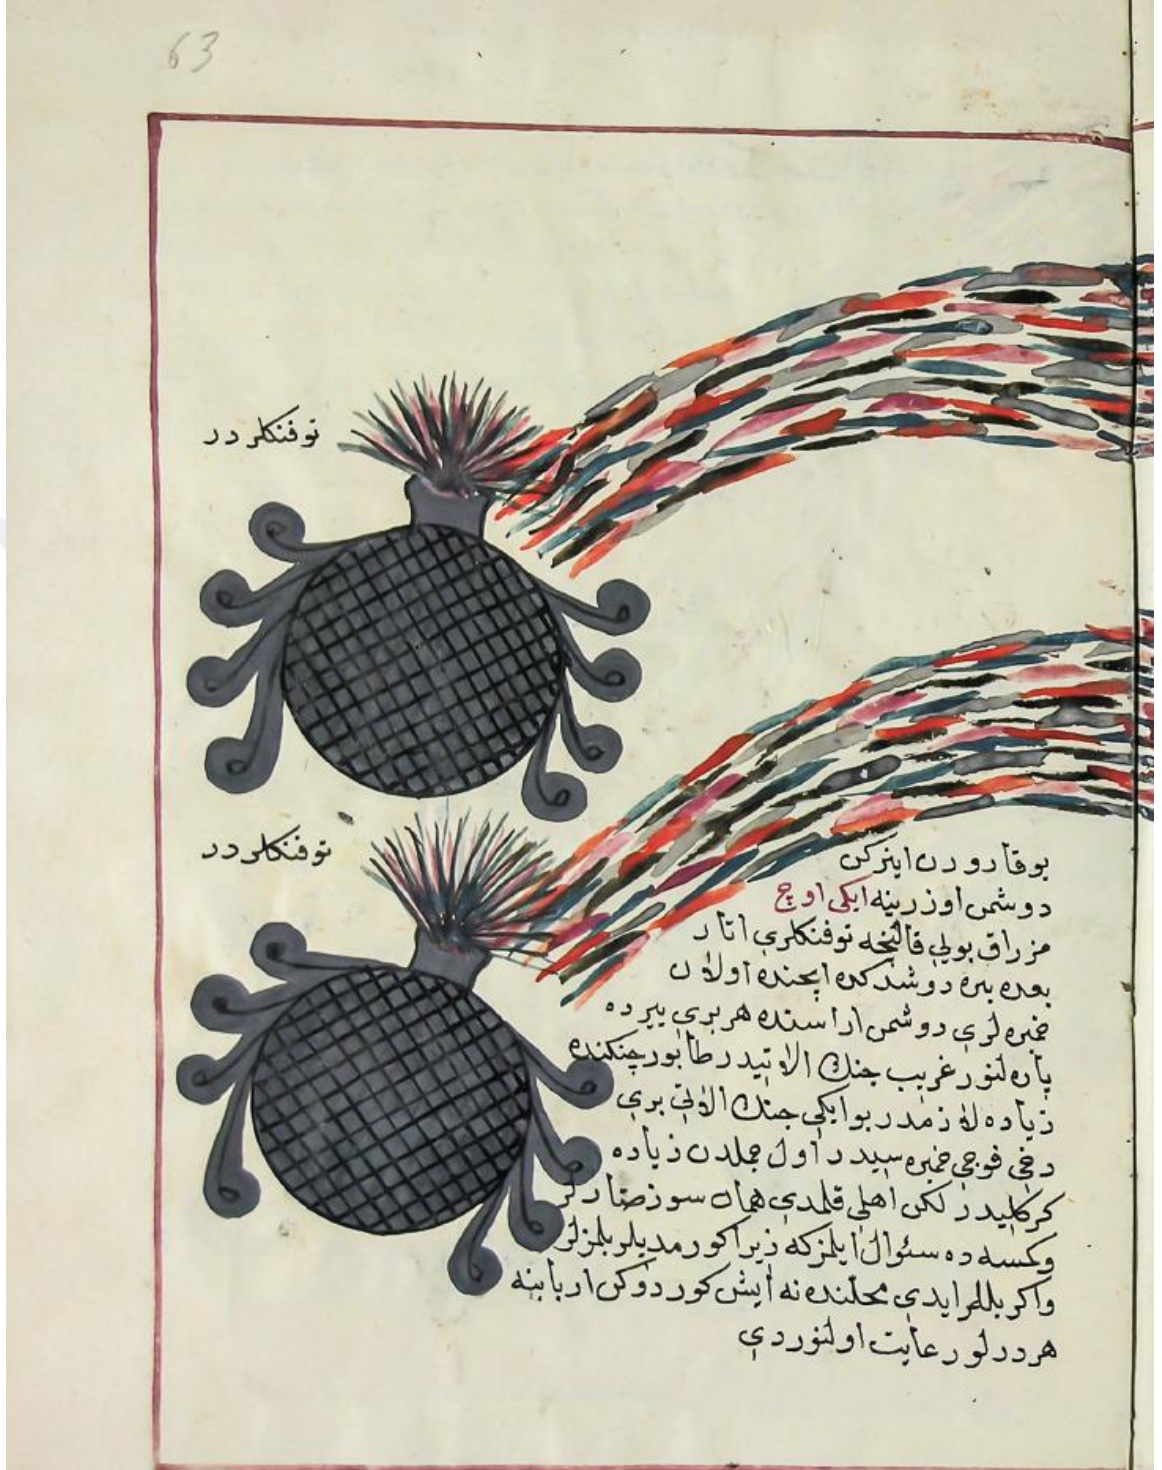 63
توفنكلر در
توفنكلر در
يوقارودن اينركن
دوشمن اوزرينه ايكى اوچ
مزراق بويى قالنجه توفنكلرى اتار
بعده يره دوشدكده ايچنده اولان
خمبره لرى دوشمن اراسنده هر برى ييرده
پاره لنور غريب جنك الاتيدر طابور جنكنده
زياده لازمدر بو ايكى جنك الاتى برى
دخى قوجى خمبره سيدر اول جملدن زياده
كركليدر لكن اهلى قلمدى همان سوز صتارلر
وكمسه ده سئوال ايلمزكه زيرا كورمديلر بلمزلر
واكر بللر ايدى محلنده نه ايش كوردوكن اربابنه
هر درلو رعايت اولنوردى